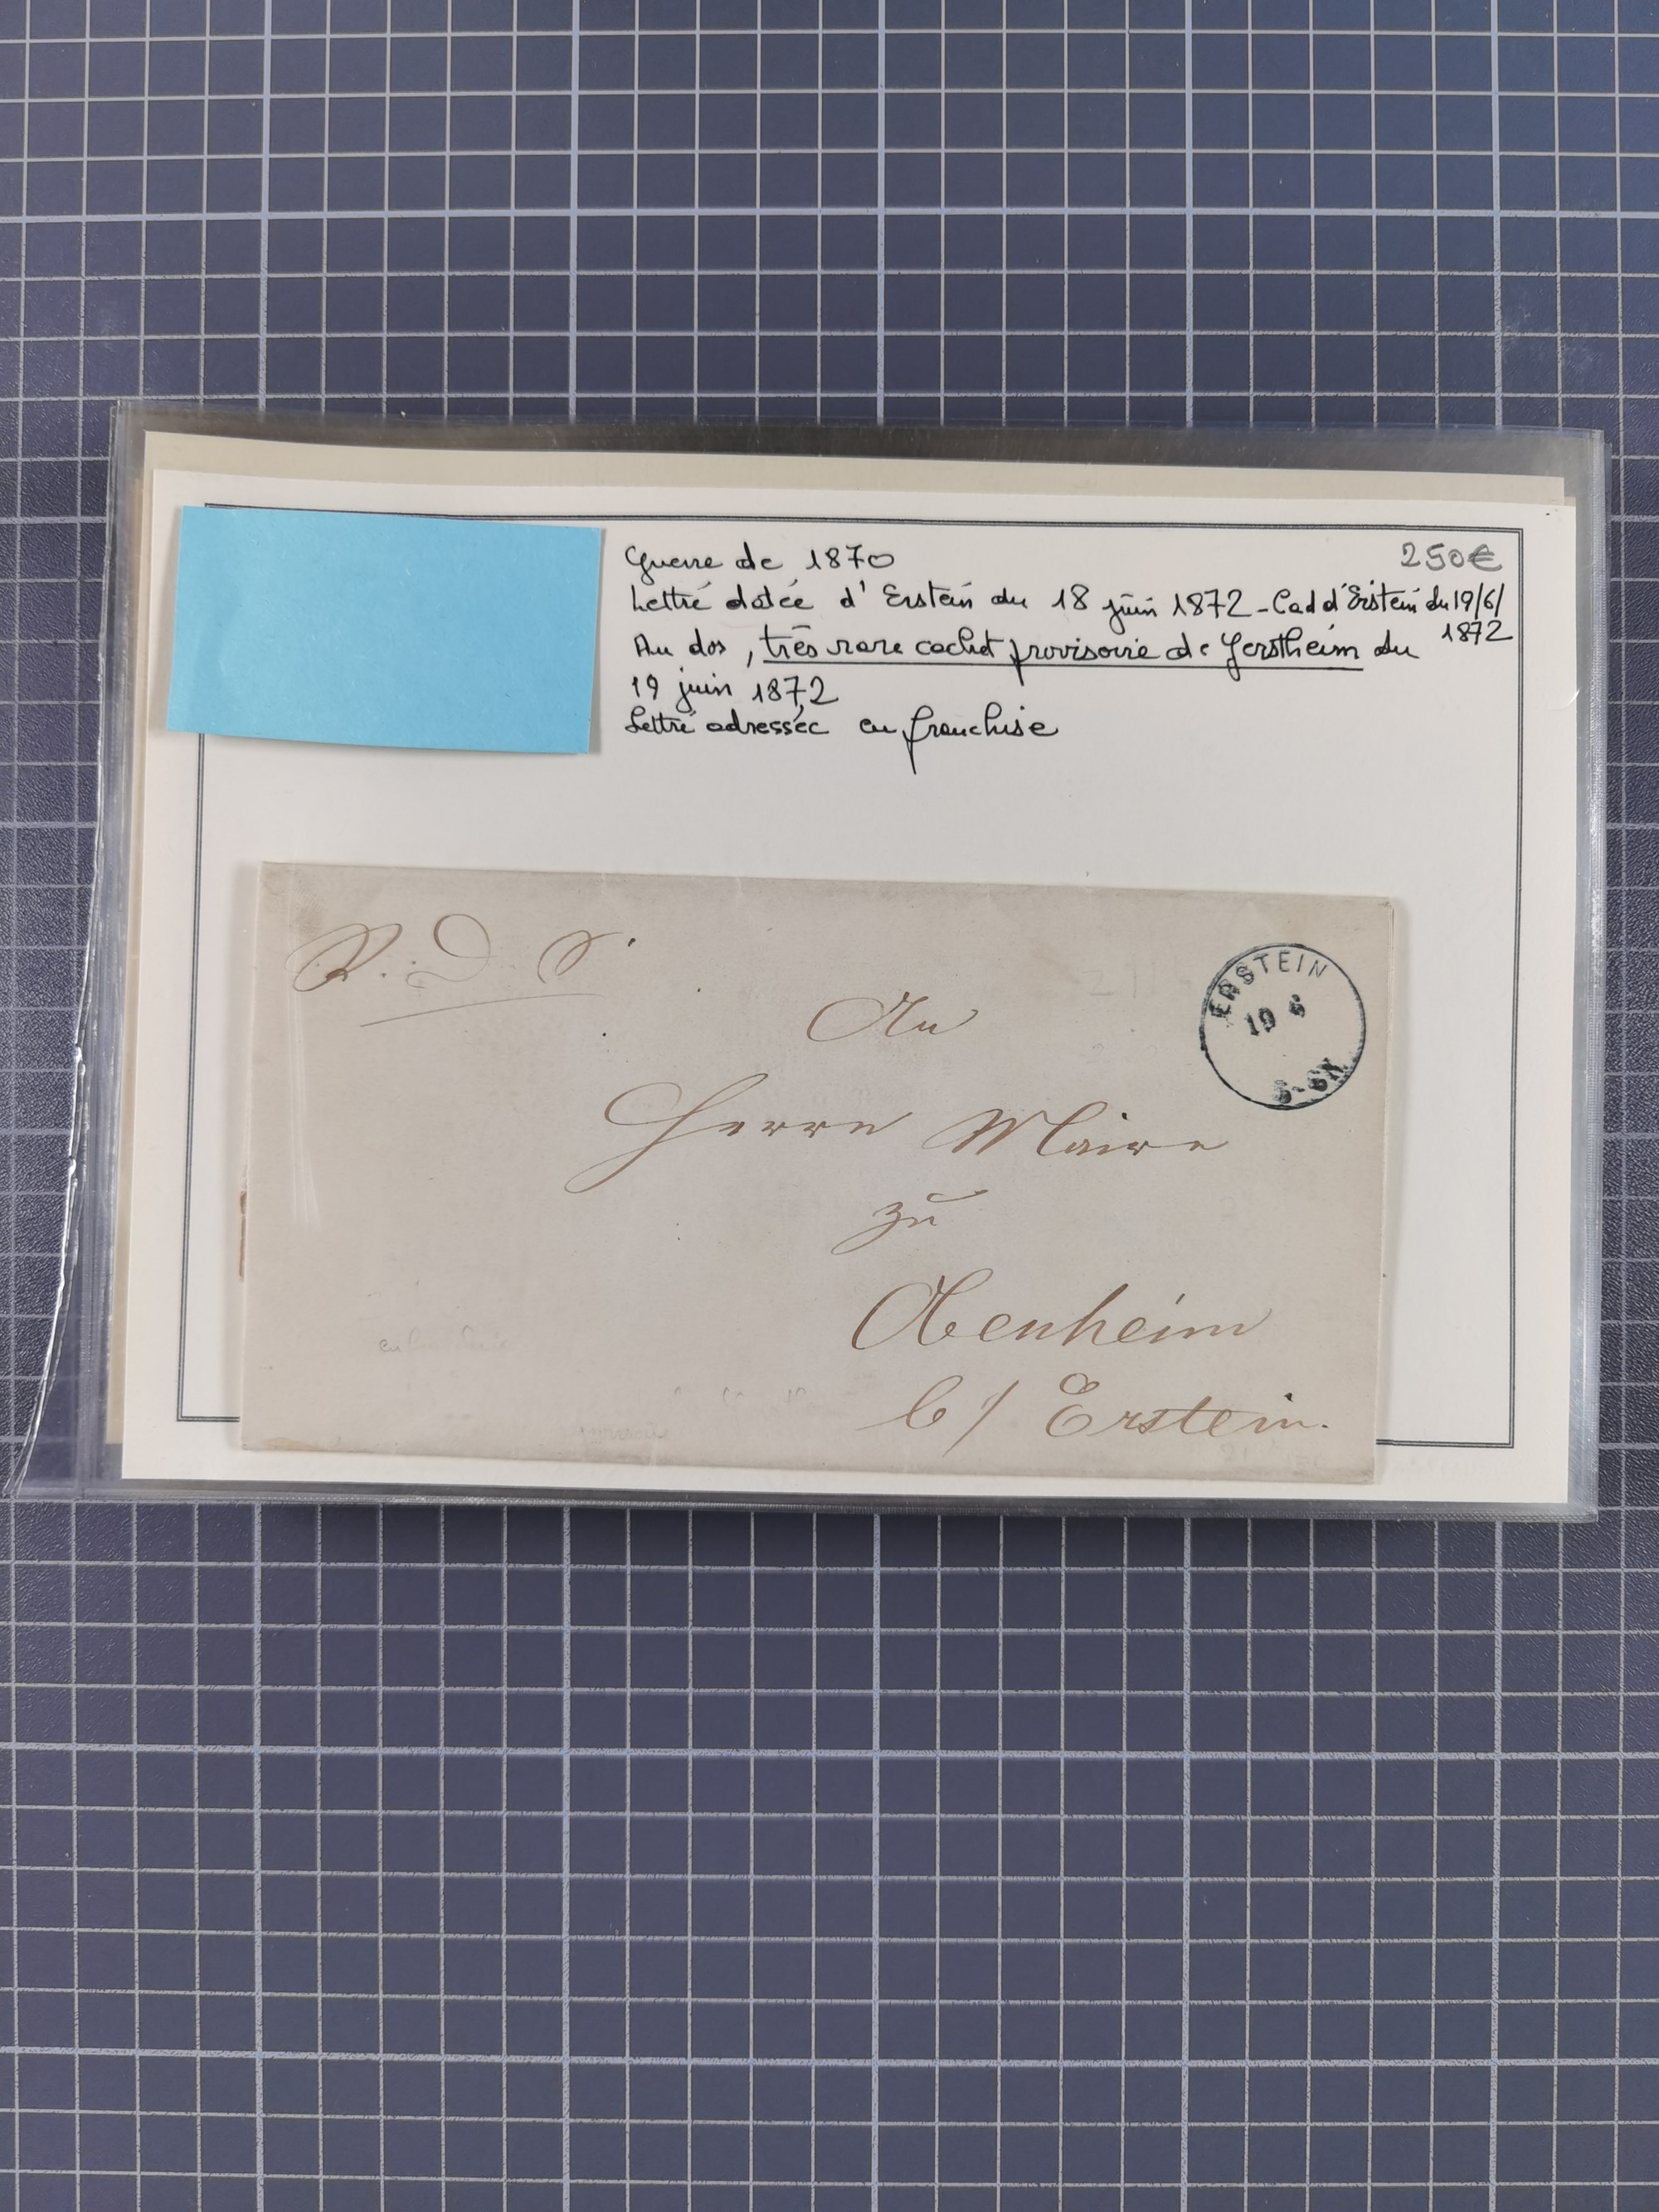 Guerre de 1870
250€
Lettre datée d'Erstein du 18 juin 1872 - Cad d'Erstein du 19/6/
1872
Au dos, très rare cachet provisoire de Gerstheim du
19 juin 1872
Lettre adressée en franchise
ERSTEIN
19 6
5-6N
An
Herrn Maire
zu
Obenheim
b/ Erstein.